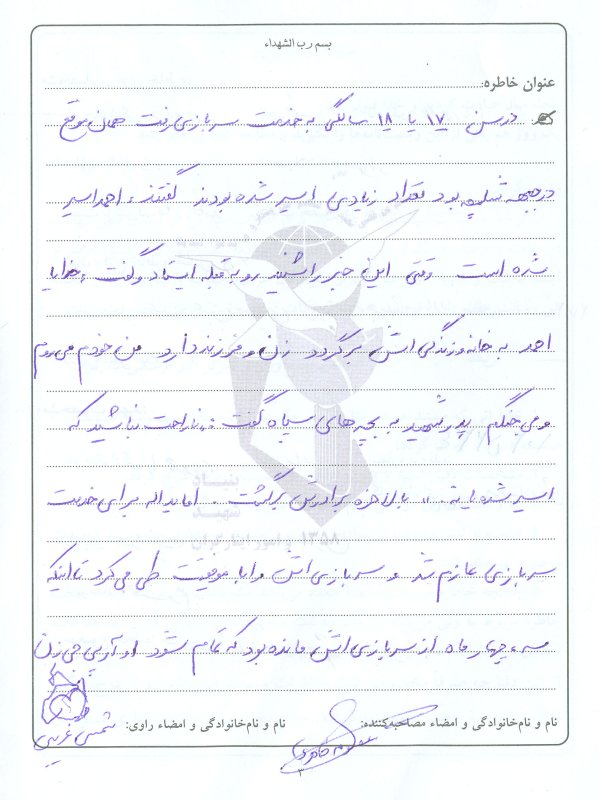 بسم رب الشهداء
عنوان خاطره:
درسن ۱۷ یا ۱۸ سالگی به خدمت سربازی رفت همان موقع
در جبهه شلمچه بود تعداد زیادی اسیر شده بودند گفتند، احمد اسیر
شده است وقتی این خبر را شنید رو به قبله ایستاد و گفت، خدایا
احمد به خانه و زندگی اش برگردد زن و فرزند دارد من خودم می روم
و می جنگم پدر شهید به بچه های سپاه گفت: ناراحت نباشید که
اسیر شده اند. " بالاخره برادرش برگشت. اما یداله برای خدمت
سربازی عازم شد و سربازی اش را با موفقیت طی می کرد تا اینکه
سه، چهار ماه از سربازی اش مانده بود که تمام شود او آرپی جی زن
نام و نام‌خانوادگی و امضاء مصاحبه‌کننده:
نام و نام‌خانوادگی و امضاء راوی:
بنیاد
شهید
و امور ایثارگران
۱۳۵۸